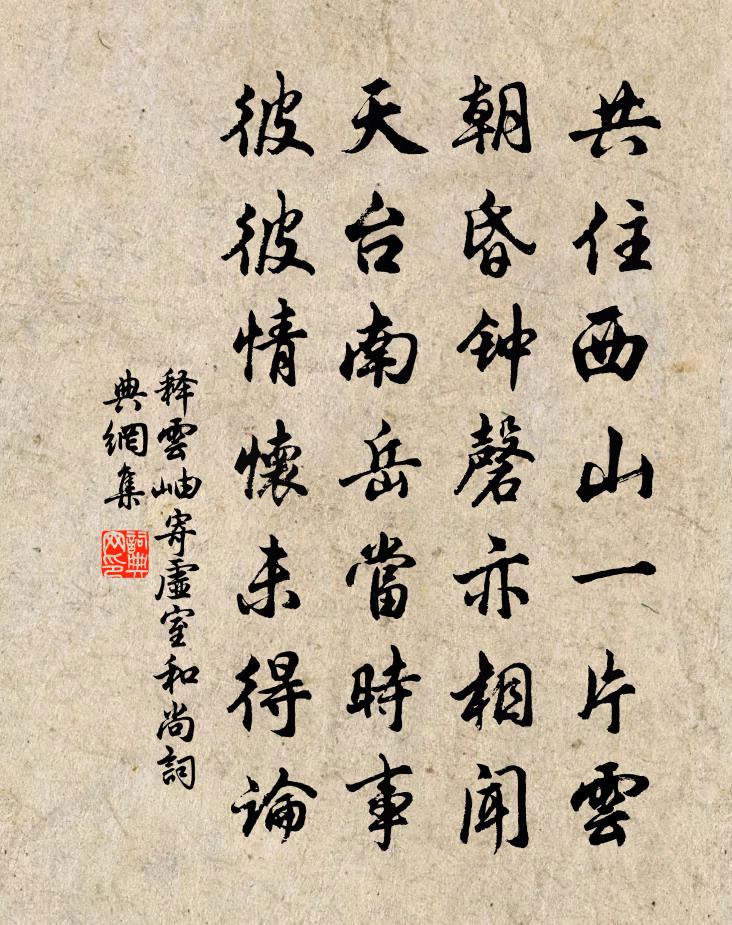 共住西山一片雲
朝昏钟磬亦相聞
天台南岳當時事
彼彼情懷未得論
释雲岫寄虛室和尚詞
典網集
詞典網印